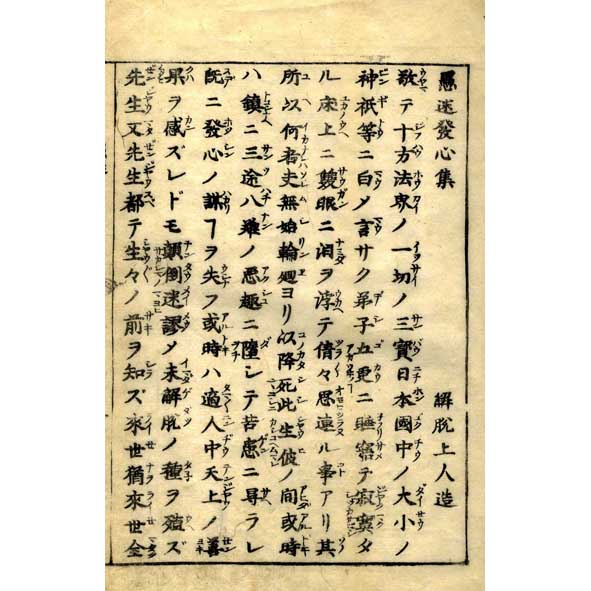 愚迷發心集　解脱上人造
敬テ十方法界ノ一切ノ三寶日本國中ノ大小ノ
神祇等ニ白〆言サク弟子五更ニ睡寤テ寂寞タ
ル床上ニ雙眼ニ泪ヲ浮テ倩々思連ル事アリ其
所以何者夫無始輪廻ヨリ以降死此生彼ノ間或時
ハ鎮ニ三途八難ノ惡趣ニ墮シテ苦患ニ㝵ラレ
既ニ發心ノ謀ヿヲ失フ或時ハ適人中天上ノ善
果ヲ感ズレドモ顛倒迷謬〆未解脱ノ種ヲ殖ズ
先生又先生都テ生々ノ前ヲ知ズ來世猶來世全